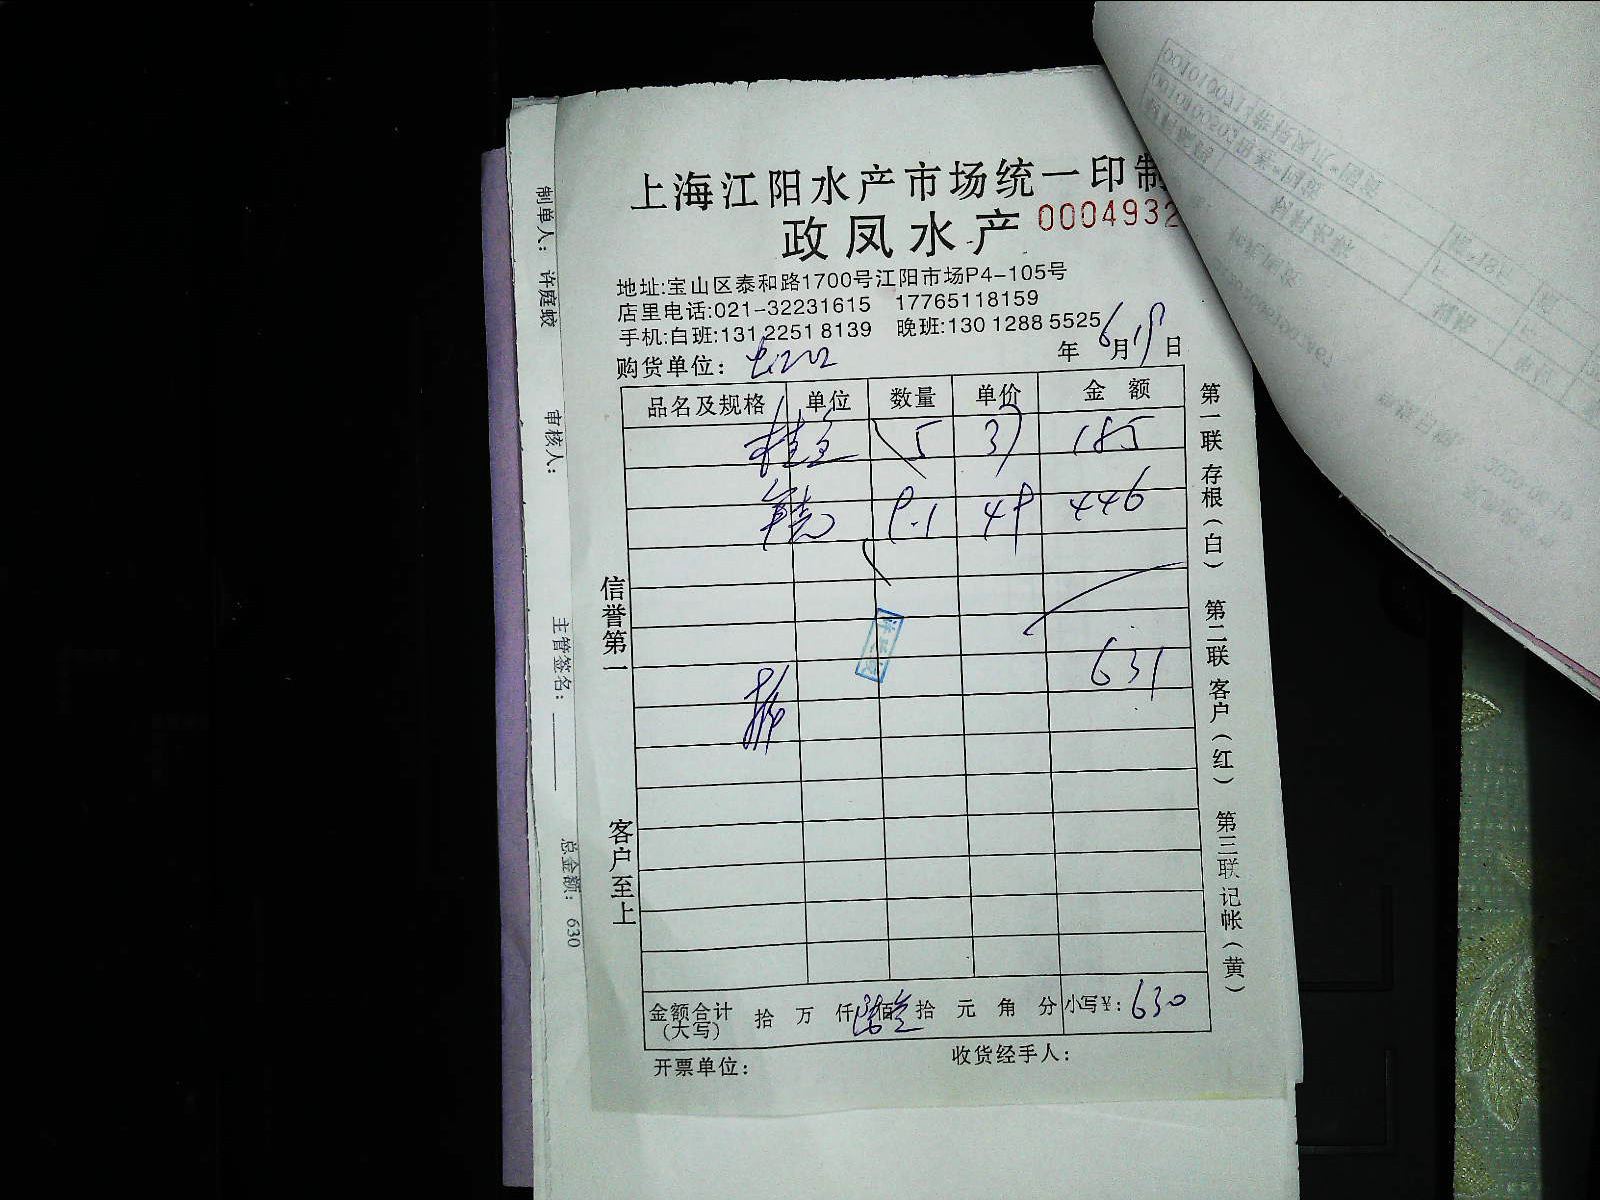 上海江阳水产市场统一印制
政凤水产 0004932
地址:宝山区泰和路1700号江阳市场P4-105号
店里电话:021-32231615 17765118159
手机:白班:131 2251 8139 晚班:130 1288 5525
购货单位: 年 6 月 19 日
品名及规格 单位 数量 单价 金额
桂鱼 5 37 185
9.1 49 446
631
金额合计(大写) 拾 万 仟 佰 拾 元 角 分 小写¥: 630
开票单位: 收货经手人:
信誉第一 客户至上
第一联存根(白) 第二联客户(红) 第三联记帐(黄)
制单人: 许庭蛟 审核人: 主管签名: 总金额: 630